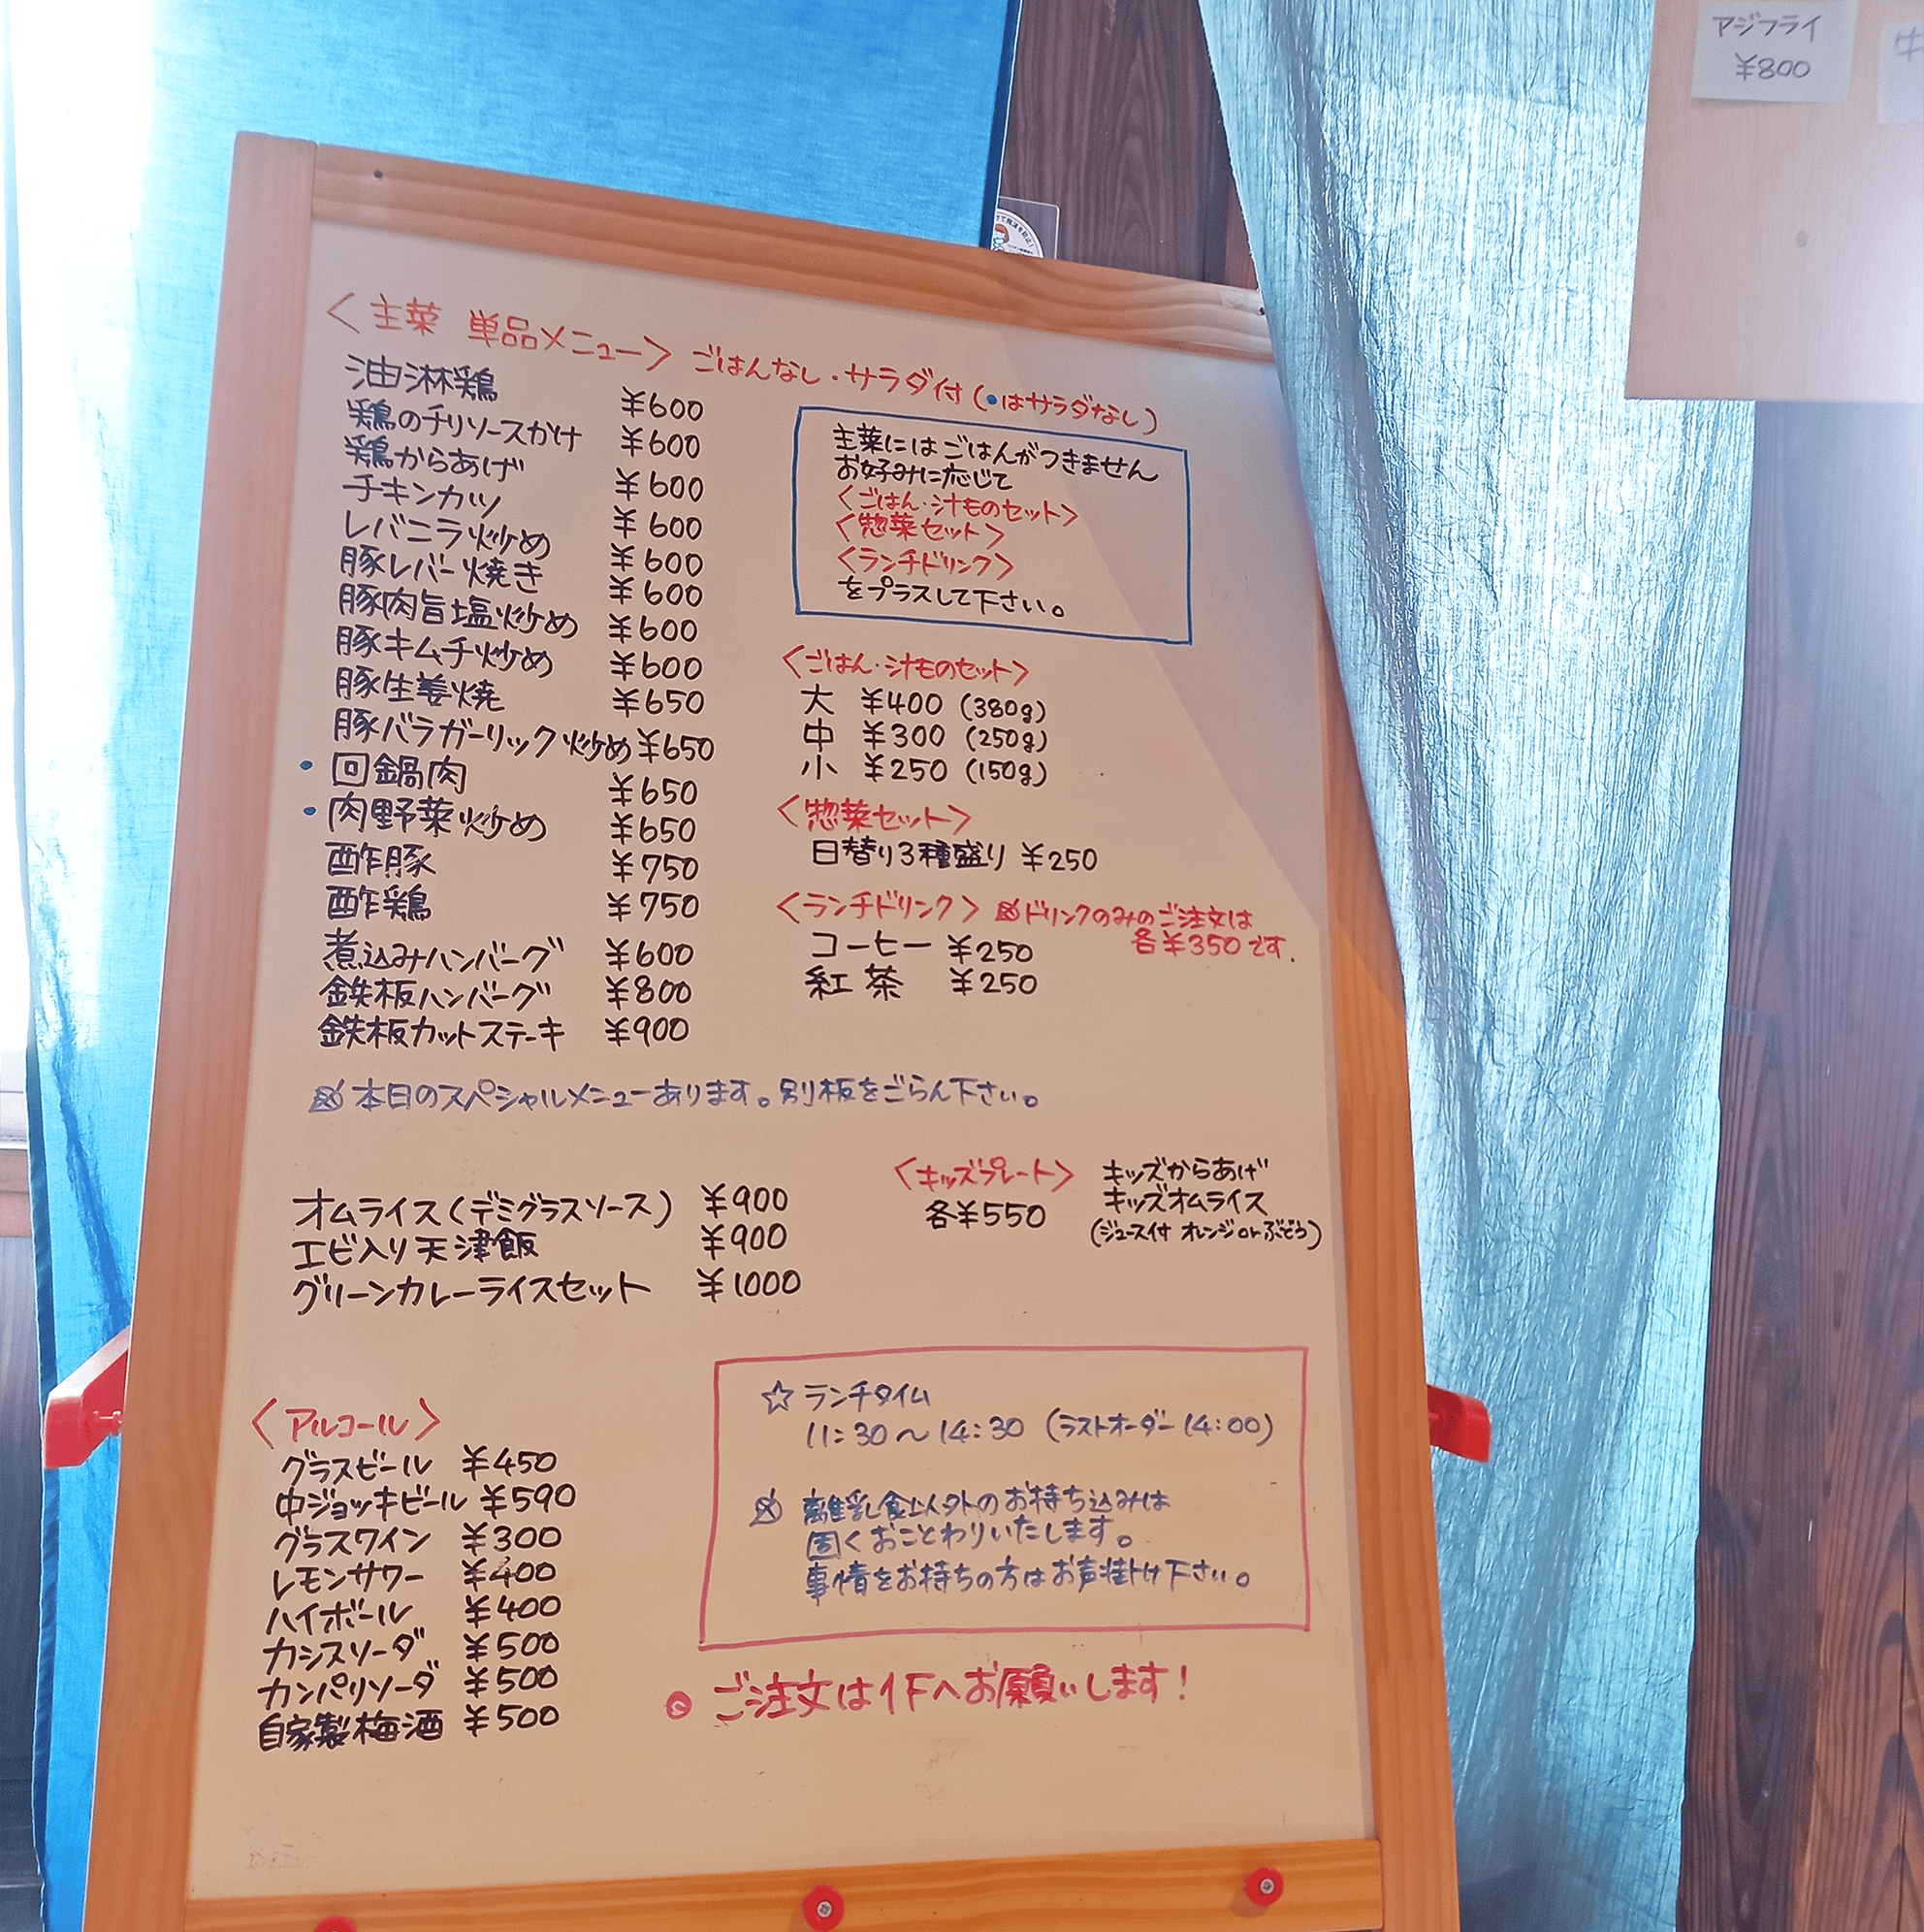 アジフライ
¥800
<主菜 単品メニュー> ごはんなし・サラダ付(•はサラダなし)
油淋鶏 ¥600
鶏のチリソースかけ ¥600
鶏からあげ ¥600
チキンカツ ¥600
レバニラ炒め ¥600
豚レバー焼き ¥600
豚肉旨塩炒め ¥600
豚キムチ炒め ¥600
豚生姜焼 ¥650
豚バラガーリック炒め ¥650
• 回鍋肉 ¥650
• 肉野菜炒め ¥650
酢豚 ¥750
酢鶏 ¥750
煮込みハンバーグ ¥600
鉄板ハンバーグ ¥800
鉄板カットステーキ ¥900
主菜にはごはんがつきません
お好みに応じて
<ごはん・汁ものセット>
<惣菜セット>
<ランチドリンク>
をプラスして下さい。
<ごはん・汁ものセット>
大 ¥400 (380g)
中 ¥300 (250g)
小 ¥250 (150g)
<惣菜セット>
日替り3種盛り ¥250
<ランチドリンク> ※ドリンクのみのご注文は
各¥350です.
コーヒー ¥250
紅茶 ¥250
※本日のスペシャルメニューあります。別板をごらん下さい。
オムライス(デミグラスソース) ¥900
エビ入り天津飯 ¥900
グリーンカレーライスセット ¥1000
<キッズプレート>
各¥550
キッズからあげ
キッズオムライス
(ジュース付 オレンジorぶどう)
<アルコール>
グラスビール ¥450
中ジョッキビール ¥590
グラスワイン ¥300
レモンサワー ¥400
ハイボール ¥400
カシスソーダ ¥500
カンパリソーダ ¥500
自家製梅酒 ¥500
☆ ランチタイム
11:30〜14:30 (ラストオーダー14:00)
※ 離乳食以外のお持ち込みは
固くおことわりいたします。
事情をお持ちの方はお声掛け下さい。
ご注文は1Fへお願いします!